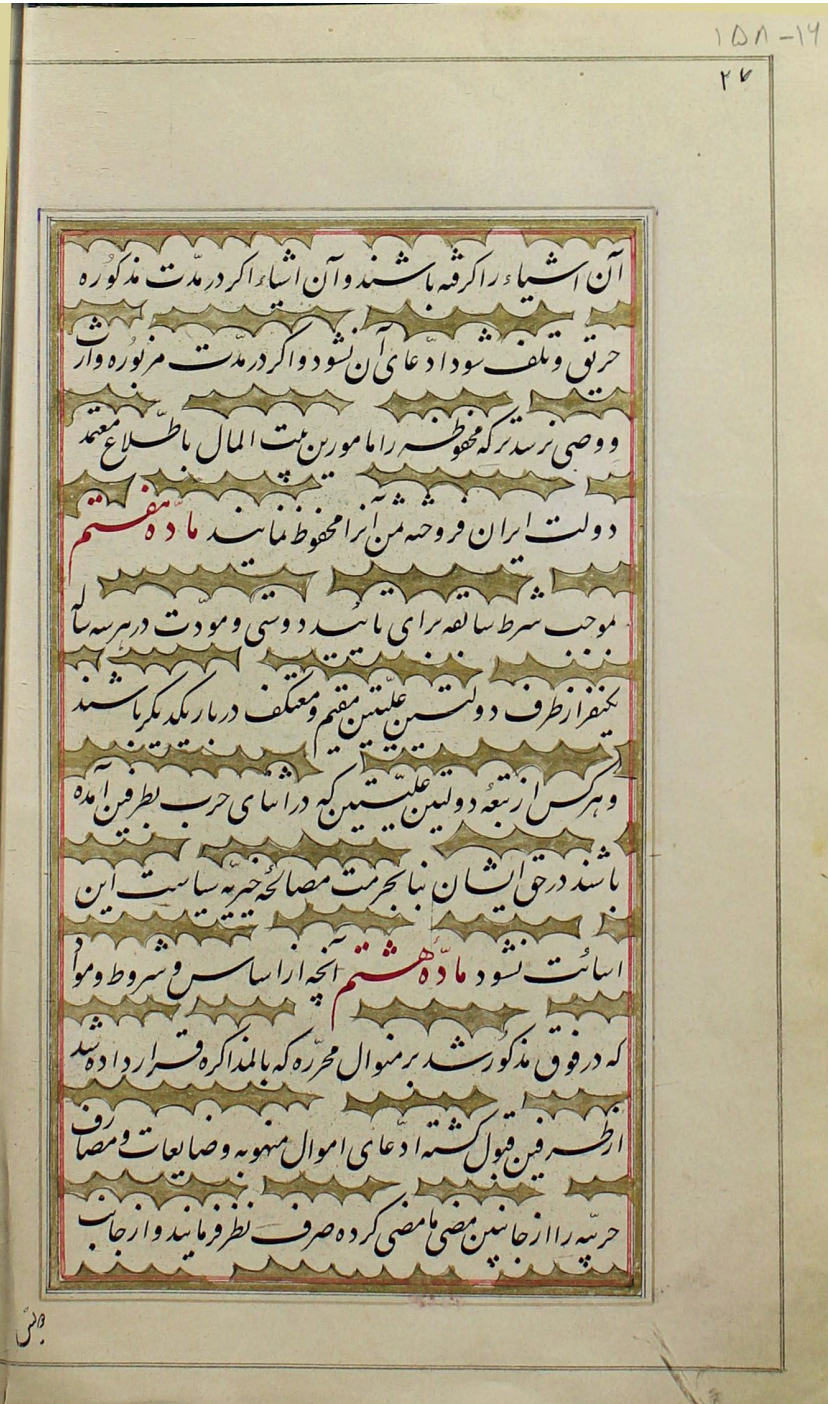 ۱۵۸-۱۶
۲۷
آن اشیاء را گرفته باشند و آن اشیاء اگر در مدّت مذکوره
حریق و تلف شود ادّعای آن نشود و اگر در مدّت مزبوره وارث
و وصی نرسد ترکه محفوظه را مامورین بیت المال باطّلاع معتمد
دولت ایران فروخته ثمن آنرا محفوظ نمایند مادّه هفتم
بموجب شرط سابقه برای تائید دوستی و مودّت در هر سه ساله
یکنفر از طرف دولتین علیّتین مقیم و معتکف دربار یکدیگر باشند
و هر کس از تبعهٔ دولتین علیّتین که در اثنای حرب بطرفین آمده
باشند در حق ایشان بنا بحرمت مصالحهٔ خیریّه سیاست این
اسائت نشود مادّهٔ هشتم آنچه از اساس و شروط و مواد
که در فوق مذکور شد بر منوال محرّره که بالمذاکره قرار داده شد
از طرفین قبول گشته ادّعای اموال منهوبه و ضایعات و مصارف
حربیّه را از جانبین مضی ما مضی کرده صرف نظر فرمایند و از جانب